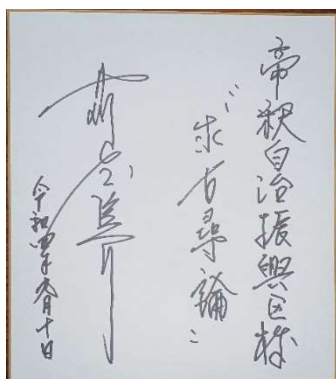 帝釈自治振興区様
“求古尋論”
令和四年九月十日